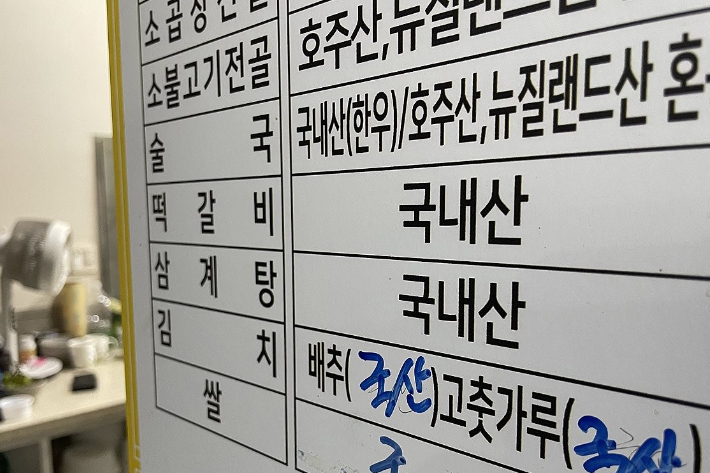 소곱창전골 호주산,뉴질랜드산
소불고기전골
술국 국내산(한우)/호주산,뉴질랜드산 혼
떡갈비 국내산
삼계탕 국내산
김치 배추(국산)고춧가루(국산)
쌀 국